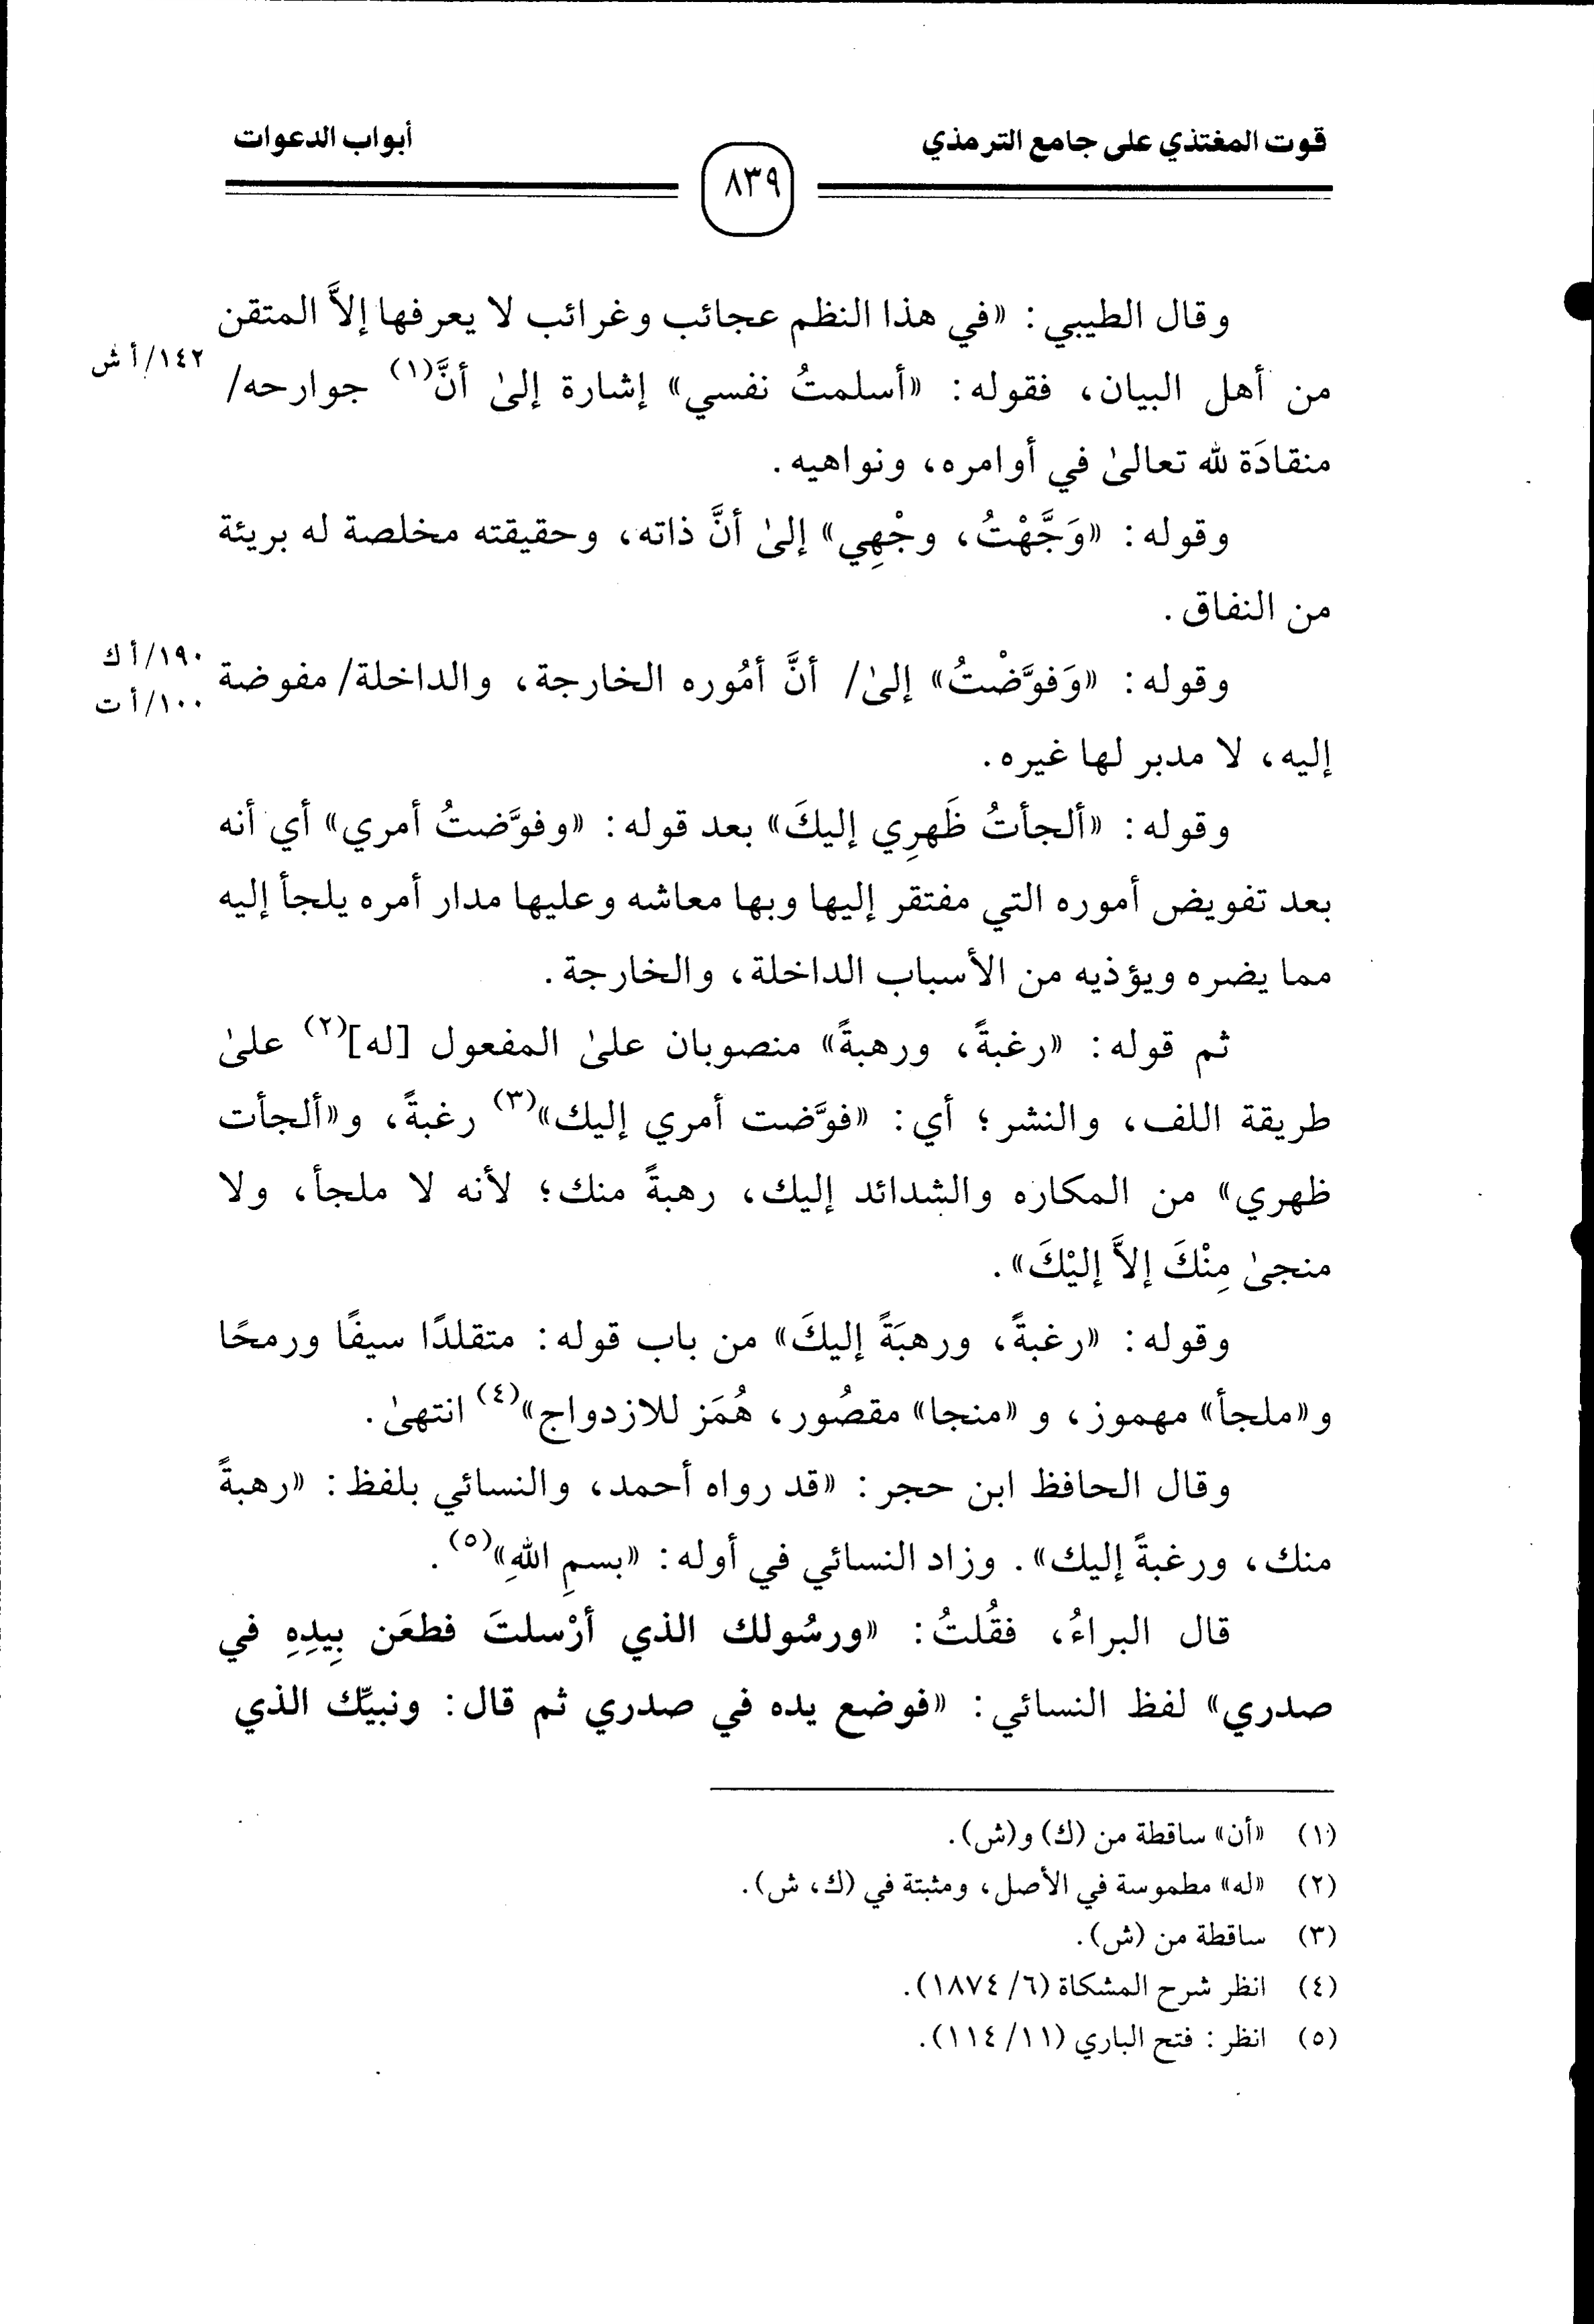 قوت المغتذي على جامع الترمذي
أبواب الدعوات
٨٣٩
وقال الطيبي: «في هذا النظم عجائب وغرائب لا يعرفها إلاَّ المتقن
من أهل البيان، فقوله: «أسلمتُ نفسي» إشارة إلىٰ أنَّ(١) جوارحه/
١٤٢/أ ش
منقادَة لله تعالىٰ في أوامره، ونواهيه.
وقوله: «وَجَّهْتُ، وجْهِي» إلىٰ أنَّ ذاته، وحقيقته مخلصة له بريئة
من النفاق.
وقوله: «وَفوَّضْتُ» إلىٰ/ أنَّ أمُوره الخارجة، والداخلة/ مفوضة
١٩٠/أ ك
١٠٠/أ ت
إليه، لا مدبر لها غيره.
وقوله: «ألجأتُ ظَهرِي إليكَ» بعد قوله: «وفوَّضتُ أمري» أي أنه
بعد تفويض أموره التي مفتقر إليها وبها معاشه وعليها مدار أمره يلجأ إليه
مما يضره ويؤذيه من الأسباب الداخلة، والخارجة.
ثم قوله: «رغبةً، ورهبةً» منصوبان علىٰ المفعول [له](٢) علىٰ
طريقة اللف، والنشر؛ أي: «فوَّضت أمري إليك»(٣) رغبةً، و«ألجأت
ظهري» من المكاره والشدائد إليك، رهبةً منك؛ لأنه لا ملجأ، ولا
منجىٰ مِنْكَ إلاَّ إليْكَ».
وقوله: «رغبةً، ورهبَةً إليكَ» من باب قوله: متقلدًا سيفًا ورمحًا
و«ملجأ» مهموز، و «منجا» مقصُور، هُمَز للازدواج»(٤) انتهىٰ.
وقال الحافظ ابن حجر: «قد رواه أحمد، والنسائي بلفظ: «رهبةً
منك، ورغبةً إليك». وزاد النسائي في أوله: «بسمِ اللهِ»(٥).
قال البراءُ، فقُلتُ: «ورسُولك الذي أرْسلتَ فطعَن بِيدِهِ في
صدري» لفظ النسائي: «فوضع يده في صدري ثم قال: ونبيِّك الذي
(١) «أن» ساقطة من (ك) و(ش).
(٢) «له» مطموسة في الأصل، ومثبتة في (ك، ش).
(٣) ساقطة من (ش).
(٤) انظر شرح المشكاة (٦/ ١٨٧٤).
(٥) انظر: فتح الباري (١١/ ١١٤).